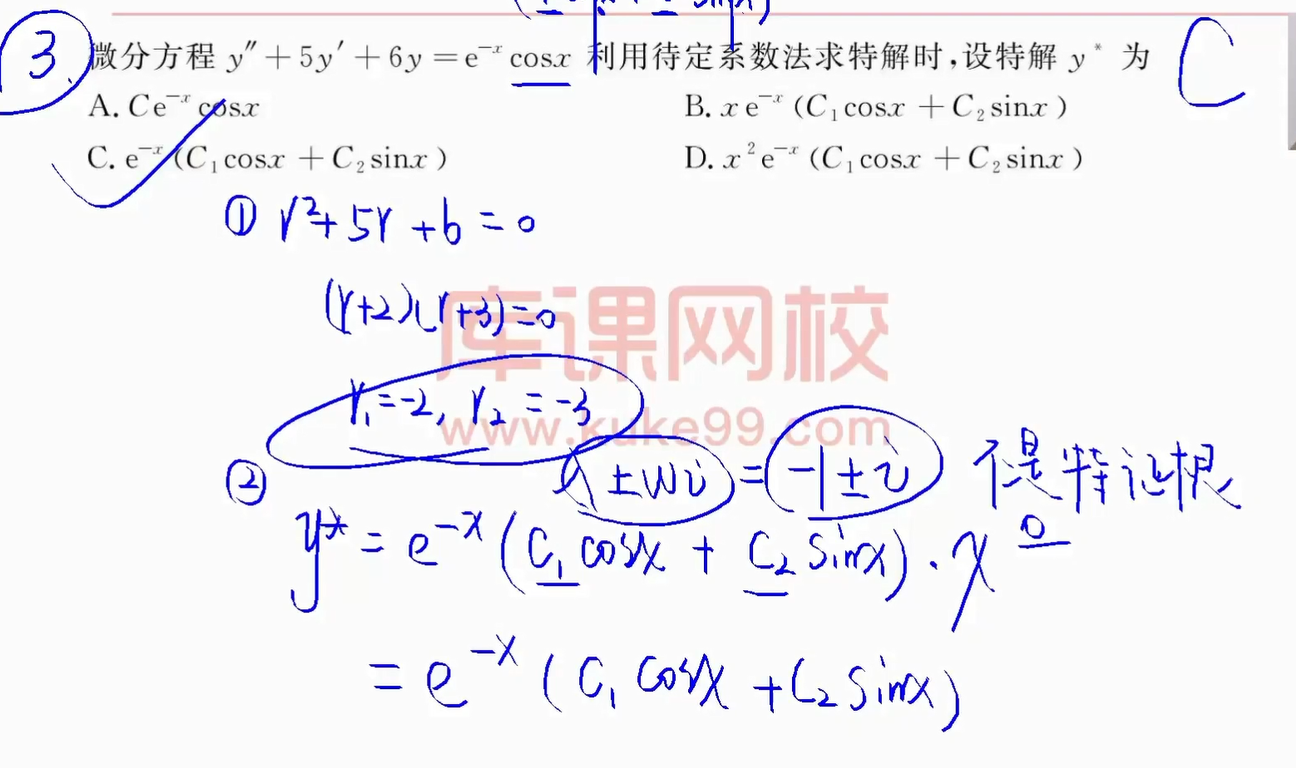 3. 微分方程 y″+5y′+6y=e⁻ˣ cosx 利用待定系数法求特解时,设特解 y* 为 C
A. Ce⁻ˣ cosx B. x e⁻ˣ (C₁cosx+C₂sinx)
C. e⁻ˣ (C₁cosx+C₂sinx) D. x²e⁻ˣ (C₁cosx+C₂sinx)
① r²+5r+6=0
(r+2)(r+3)=0
库课网校
r₁=-2, r₂=-3
www.kuke99.com
② λ±wi=-1±i 不是特征根
y*=e⁻ˣ(C₁cosx+C₂sinx)·x⁰
=e⁻ˣ(C₁cosx+C₂sinx)